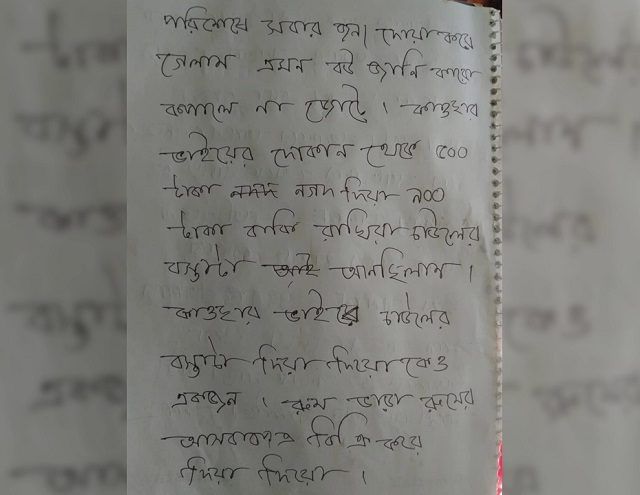 পরিশেষে সবার জন্য দোয়া করে
গেলাম এমন বউ জানি কারো
কপালে না জোটে । কাওছার
ভাইয়ের দোকান থেকে ৫০০
টাকা নগদ নগদ দিয়া ৯০০
টাকা বাকি রাখিয়া চাউলের
বস্তাটা ভাই আনছিলাম ।
কাওছার ভাইরে চাউলের
বস্তাটা দিয়া দিয়ো কেও
একজন । রুম ভাড়া রুমের
আসবাবপত্র বিক্রি করে
দিয়া দিয়ো ।